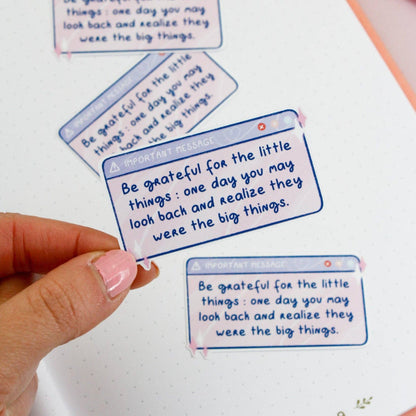 Be grateful for the little
things : one day you may
look back and realize they
were the big things.
IMPORTANT MESSAGE
Be grateful for the little
things : one day you may
look back and realize they
were the big things.
IMPORTANT MESSAGE
Be grateful for the little
things : one day you may
look back and realize they
were the big things.
IMPORTANT MESSAGE
Be grateful for the little
things : one day you may
look back and realize they
were the big things.